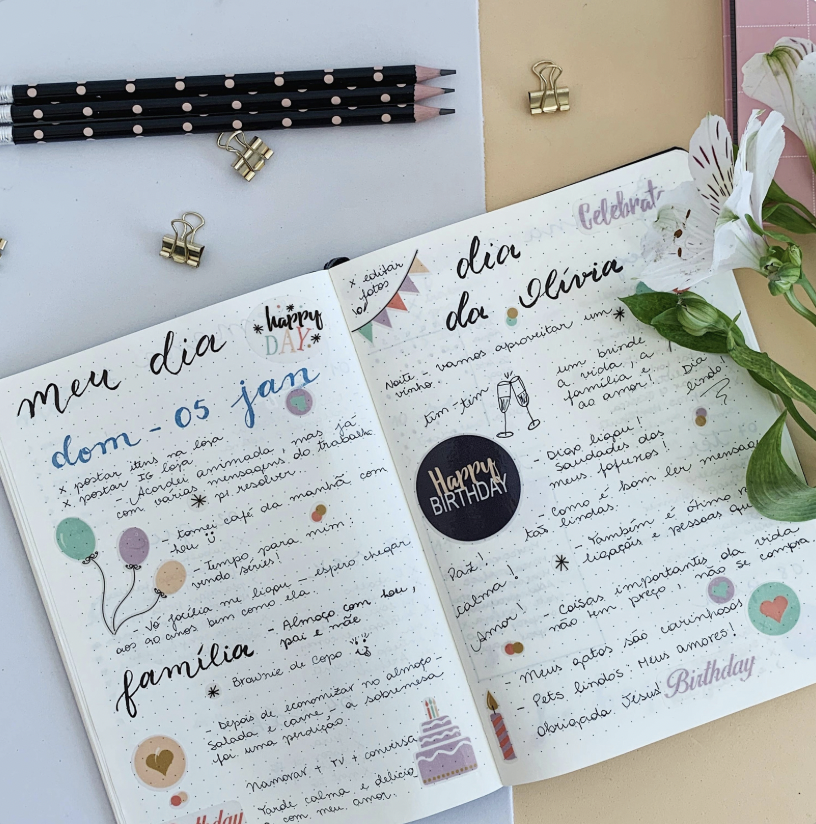 meu dia
happy
DAY.
dom - 05 jan
x postar itens na loja
x postar IG loja
- Acordei animada, mas já
com várias mensagens do trabalho
p/ resolver.
- tomei café da manhã com
- Tempo para mim:
vendo séries!
- Vó Jocília me ligou - espero chegar
aos 90 anos bem como ela
família - Almoço com
pai e mãe.
Brownie de Copo
- Depois de economizar no almoço -
salada e carne - a sobremesa
foi uma perdição.
Namorar + TV + conversa
Tarde calma e delícia
com meu amor.
x editar
fotos
dia
da Olívia
Celebrat
Noite - vamos aproveitar um
vinho.
tim-tim
um brinde
à vida, a
família e
ao amor!
Dia
lindo!
Happy
BIRTHDAY
- Diogo ligou!
Saudades dos
meus fofuxos!
- Como é bom ler mensagens
tão lindas.
- Também é ótimo
ligações e pessoas qu
Paz!
calma!
Amor!
- Coisas importantes da vida
não tem preço, não se compra
- Meus gatos são carinhosos
- Pets lindos. Meus amores!
Obrigada Jesus!
Birthday